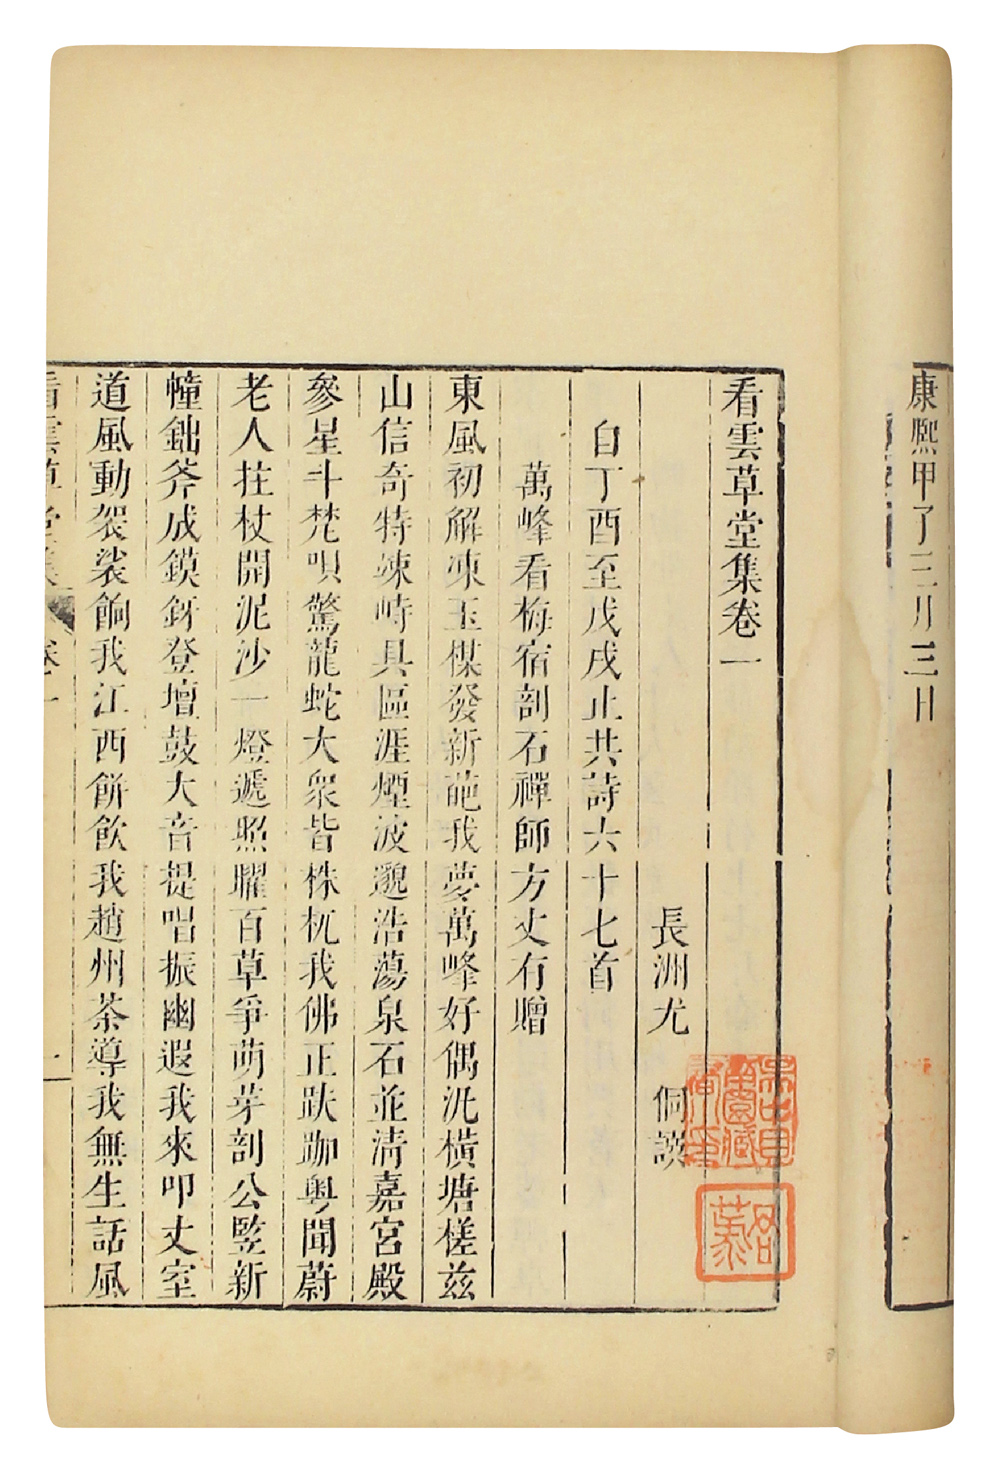 康熙甲子三月三日
看雲草堂集卷一
長洲尤　侗譔
自丁酉至戊戌止共詩六十七首
萬峰看梅宿剖石禪師方丈有贈
東風初解凍玉楳發新葩我夢萬峰好偶汎橫塘槎茲
山信奇特竦峙具區涯煙波邈浩蕩泉石並淸嘉宮殿
參星斗梵唄驚龍蛇大衆皆株杌我佛正趺跏粵聞蔚
老人拄杖開泥沙一燈遞照曜百草爭萌芽剖公豎新
幢鈯斧成鏌釾登壇鼓大音提唱振幽遐我來叩丈室
道風動袈裟餉我江西餅飮我趙州茶導我無生話風
看雲草堂集 卷一 一